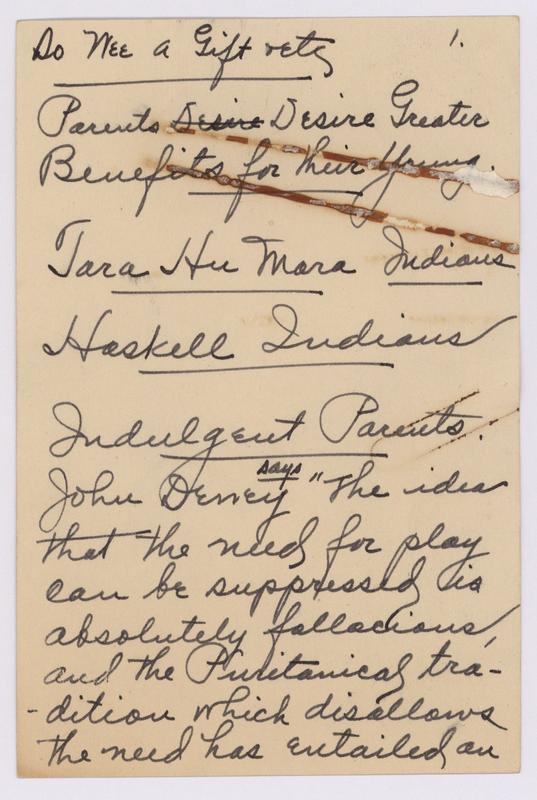 Do Wee a Gift rety 1.
Parents Desire Desire Greater
Benefits for their Young.
Tara Hu Mara Indians
Haskell Indians
Indulgent Parents.
says
John Dewey "The idea
that the need for play
can be suppressed is
absolutely fallacious,
and the Puritanical tra-
-dition which disallows
the need has entailed an